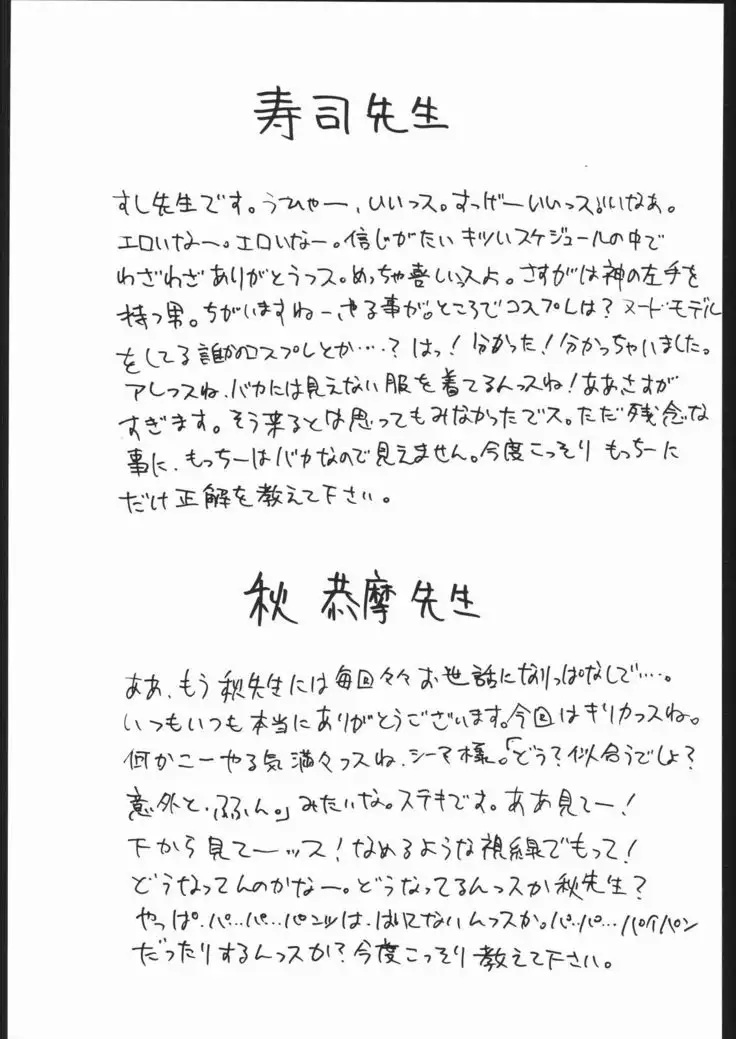 寿司先生
すし先生です。うひゃー、いいっス。すっげーいいっス。いいなぁ。
エロいなー。エロいなー。信じがたいキツいスケジュールの中で
わざわざありがとうっス。めっちゃ喜しいっスよ。さすがは神の左手を
持つ男。ちがいますねー、やる事が。ところでコスプレは？ヌードモデル
をしてる誰かのコスプレとか…？はっ！分かった！分かっちゃいました。
アレっスね、バカには見えない服を着てるんっスね！ああさすが
すぎます。そう来るとは思ってもみなかったでス。ただ残念な
事に、もっちーはバカなので見えません。今度こっそりもっちーに
だけ正解を教えて下さい。
秋 恭摩先生
ああ、もう秋先生には毎回々々お世話になりっぱなしで…。
いつもいつも本当にありがとうございます。今回はキリカっスね。
何かこーやる気満々っスね、シーマ様。「どう？似合うでしょ？
意外と、ふふん。」みたいな。ステキです。ああ見てー！
下から見てーッス！なめるような視線でもって！
どうなってんのかなー。どうなってるんっスか秋先生？
やっぱ、パ…パ…パンツは、はいてないんっスか。パ…パ…パイパン
だったりするんっスか？今度こっそり教えて下さい。